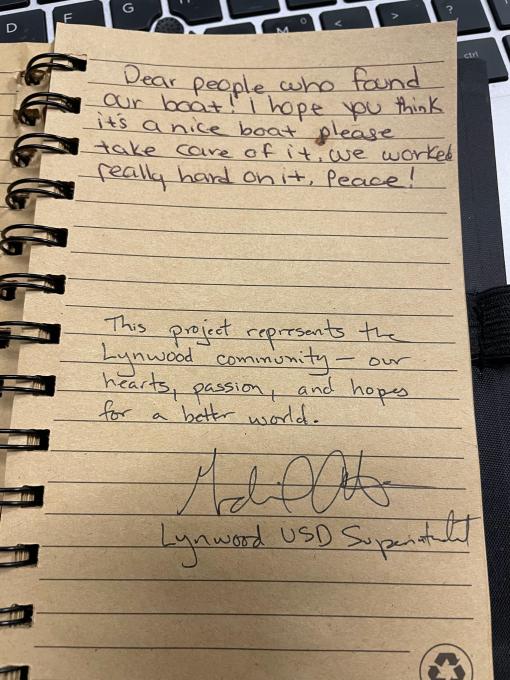 Dear people who found
our boat! I hope you think
it's a nice boat please
take care of it, we worked
really hard on it, Peace!
This project represents the
Lynwood community — our
hearts, passion, and hopes
for a better world.
Lynwood USD Superintendent
D
M
<
>
?
ctrl